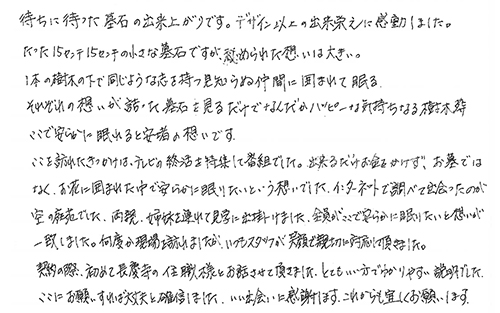 待ちに待った墓石の出来上がりです。デザイン以上の出来栄えに感動しました。
たった15センチ15センチの小さな墓石ですが、秘められた想いは大きい。
1本の樹木の下で同じような志を持つ見知らぬ仲間に囲まれて眠る
それぞれの想いが詰った墓石を見るだけでなんだかハッピーな気持ちなる樹木葬
ここで安らかに眠れると安堵の想いです。
ここを訪れたきっかけは、テレビの終活を特集して番組でした。出来るだけお金をかけず、お墓では
なく、お花に囲まれた中で安らかに眠りたいという想いでした。インターネットで調べて出会ったのが
空の庭苑でした。両親、姉妹を連れて見学に出掛けました。全員がここで安らかに眠りたいと想いが
一致しました。何度か現場を訪れましたが、いつもスタッフが笑顔で親切に対応して頂きました。
契約の際、初めて長慶寺の住職様とお話させて頂きました。とてもいい方で分かりやすい説明でした。
ここにお願いすれば大丈夫と確信しました。いい出会いに感謝します。これからも宜しくお願いします。